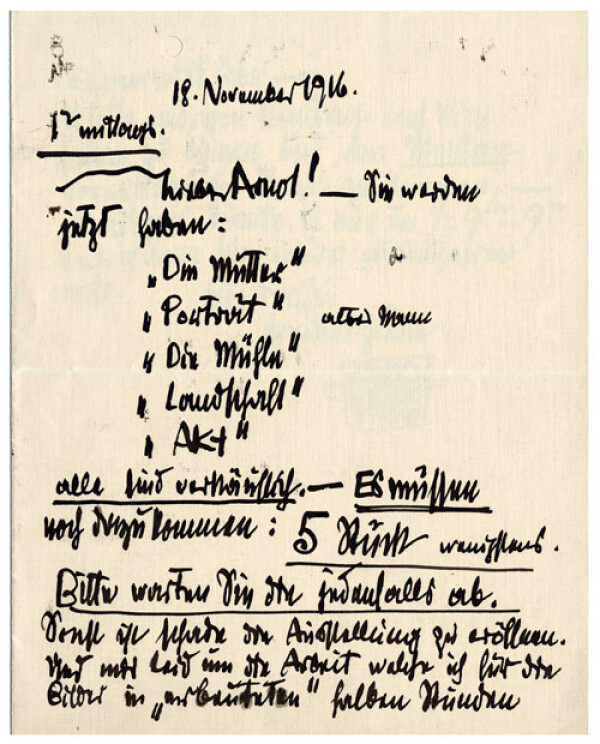 18. November 1916.
1² mittags.
Lieber Arnot! — Sie werden
jetzt haben:
„Die Mutter"
„Portrait" alter Mann
„Die Mühle"
„Landschaft"
„Akt"
alle sind verkäuflich. — Es müssen
noch dazukommen: 5 Stück wenigstens.
Bitte warten Sie die jedenfalls ab.
Sonst ist schade die Ausstellung zu eröffnen.
Und mir leid um die Arbeit welche ich für die
Bilder in „erbeuteten" halben Stunden